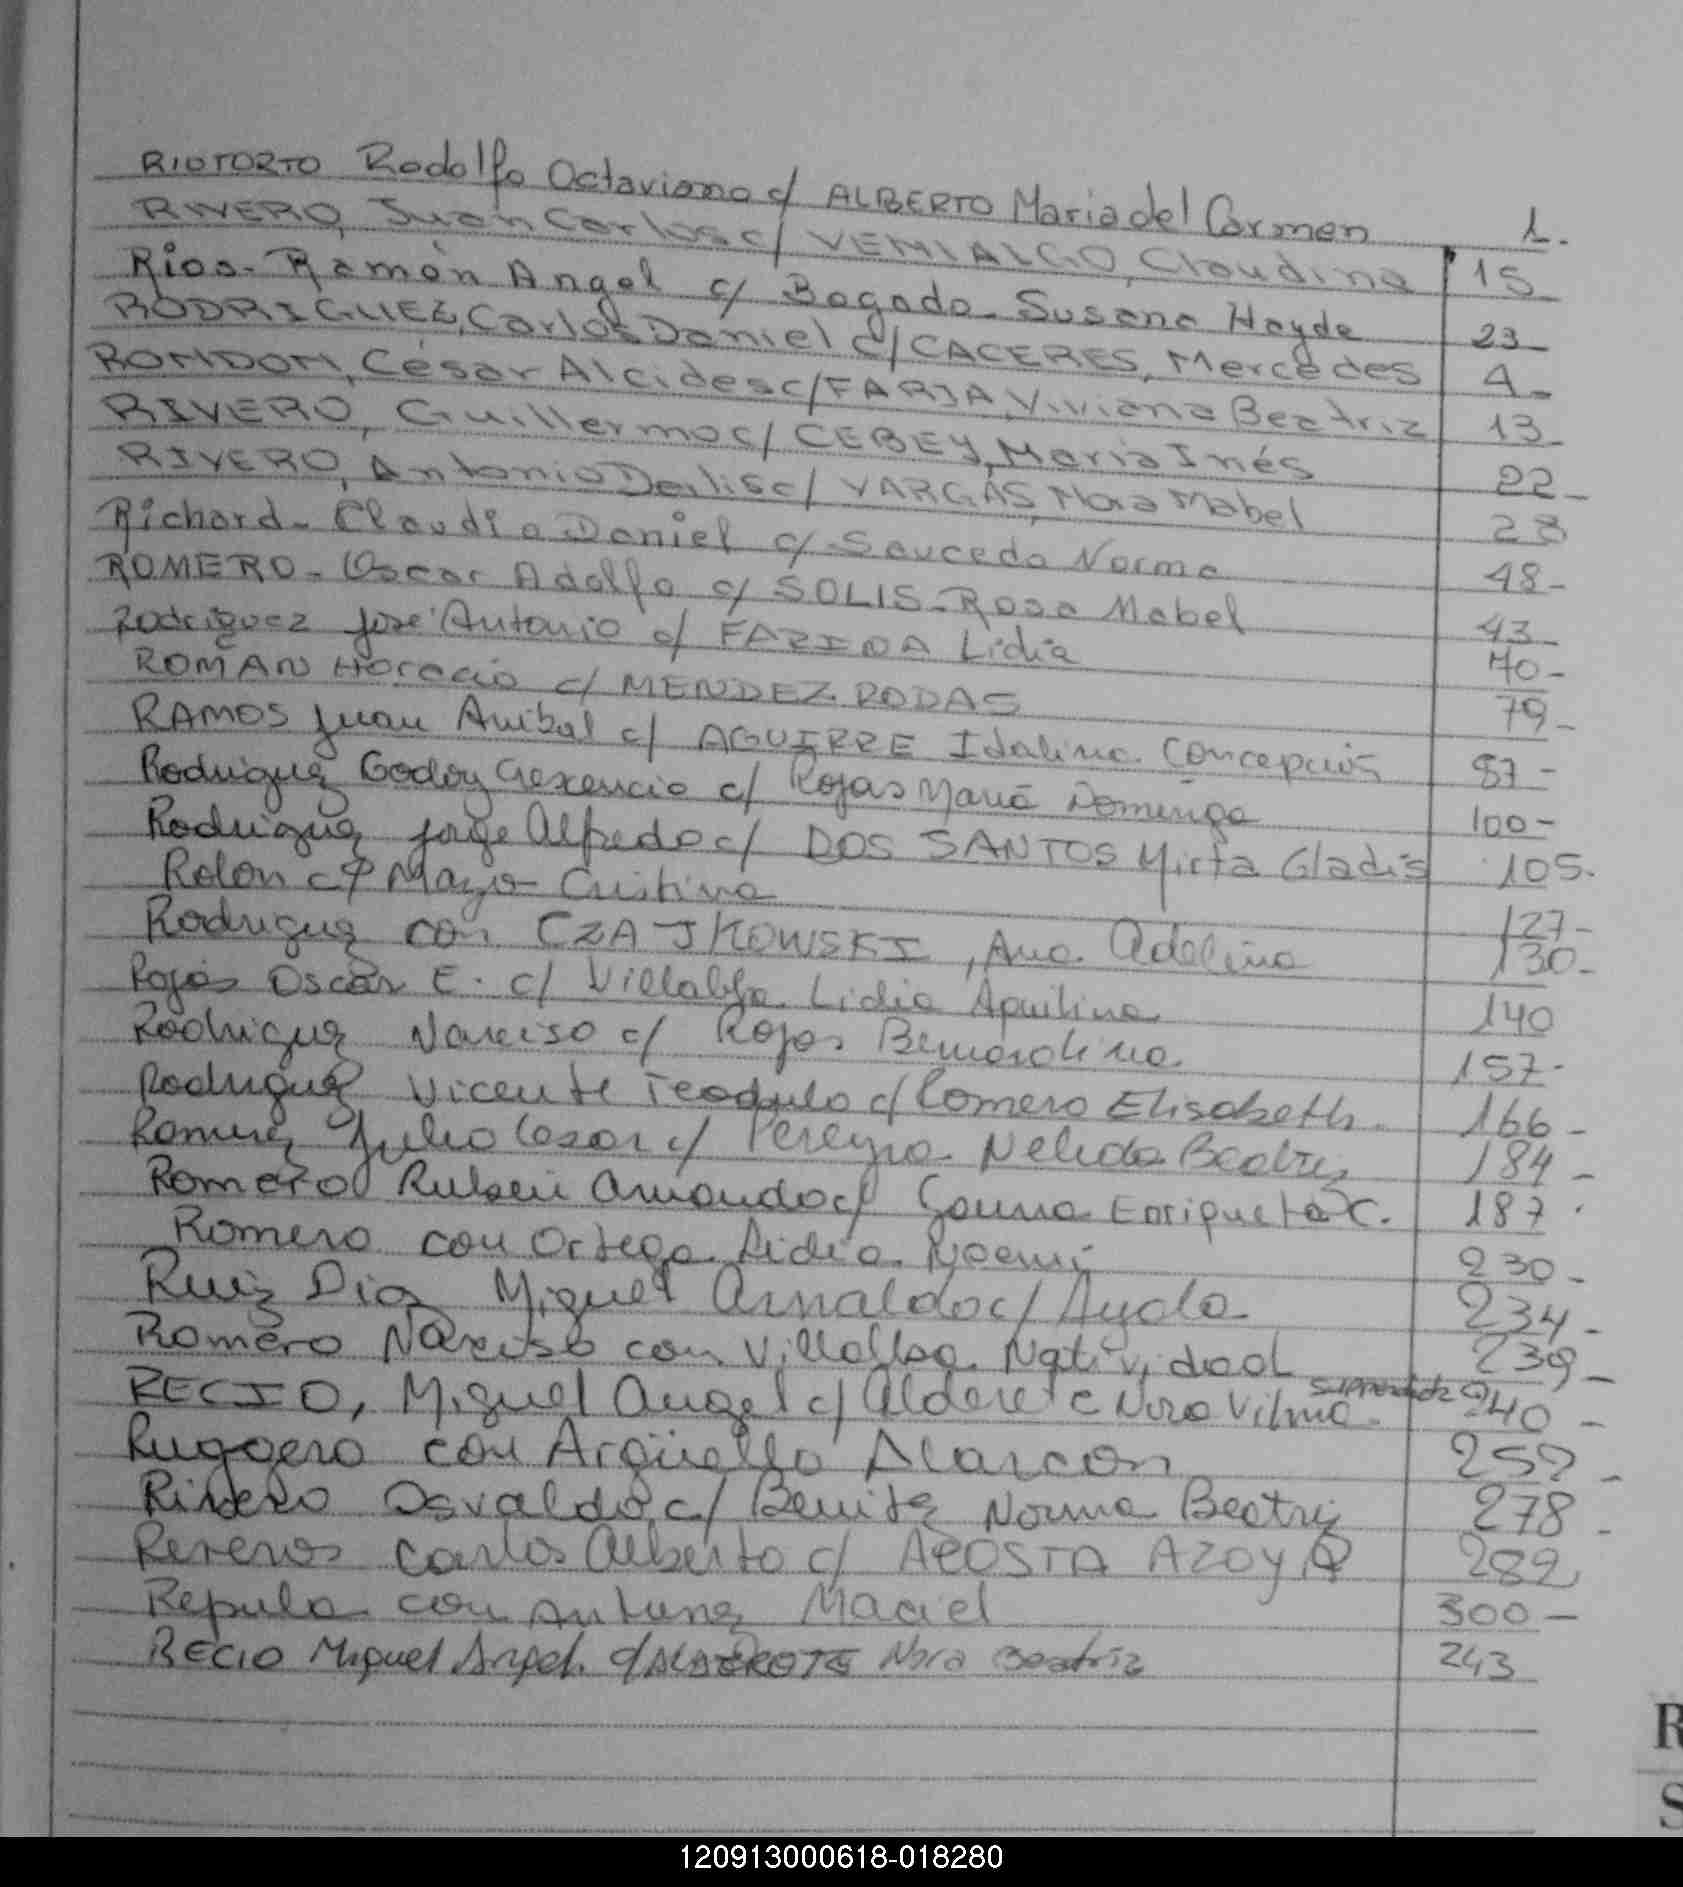 RIOTORTO Rodolfo Octaviano c/ ALBERTO Maria del Carmen 1.
RIVERO, Juan Carlos c/ VEMIALGO, Claudina 15-
Rios- Ramón Angel c/ Bogado- Susana Hayde 23-
RODRIGUEZ, Carlos Daniel c/ CACERES, Mercedes 4-
RONDON, César Alcides c/ FARIA, Viviana Beatriz 13-
RIVERO, Guillermo c/ CEBEY, Maria Inés 22-
RIVERO, Antonio Derlis c/ VARGAS, Nora Mabel 28
Richard- Claudio Daniel c/ Saucedo Norma 48-
ROMERO- Oscar Adolfo c/ SOLIS- Rosa Mabel 43-
Rodriguez José Antonio c/ FARINA Lidia 70-
ROMAN Horacio c/ MENDEZ RODAS 79-
RAMOS Juan Anibal c/ AGUIRRE Idalina Concepción 87-
Rodriguez Godoy c/ Rojas María Dominga 100-
Rodriguez Jorge Alfredo c/ DOS SANTOS Mirta Gladis 105.
Rolon Cristina 127-
Rodriguez con CZAJKOWSKI, Ana Adelina 130-
Rojas Oscar E. c/ Villalba Lidia Aquilina 140
Rodriguez Narciso c/ Rojas Bernardina. 157-
Rodriguez Vicente Teodulo c/ Romero Elisabeth. 166-
Julio Cesar c/ Pereyra Nelida Beatriz 184-
Romero Ruben Armando c/ Enriqueta C. 187
Romero con Ortega Lidia Noemi 230-
Ruiz Diaz Miguel Arnaldo c/ Ayala 234-
Romero Narciso con Villalba Natividad 239-
RECIO, Miguel Angel c/ Alderete Nora Vilma. 240-
Ruggero con Argüello Alarcon 259-
Rivero Osvaldo c/ Benitez Norma Beatriz 278-
Carlos Alberto c/ ACOSTA 282
con Antunez Maciel 300-
RECIO Miguel Angel c/ ALDERETE Nora Beatriz 243
R
S
120913000618-018280